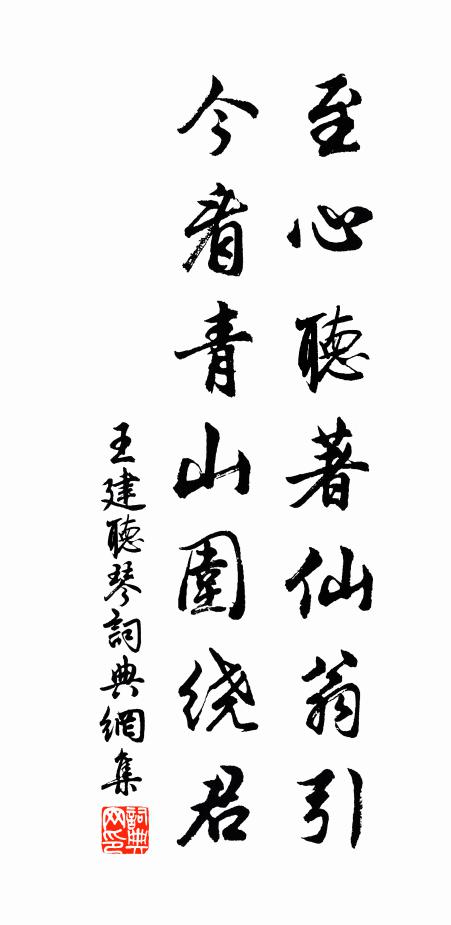 至心聽著仙翁引
今看青山圍绕君
王建聽琴詞典網集
詞典网印